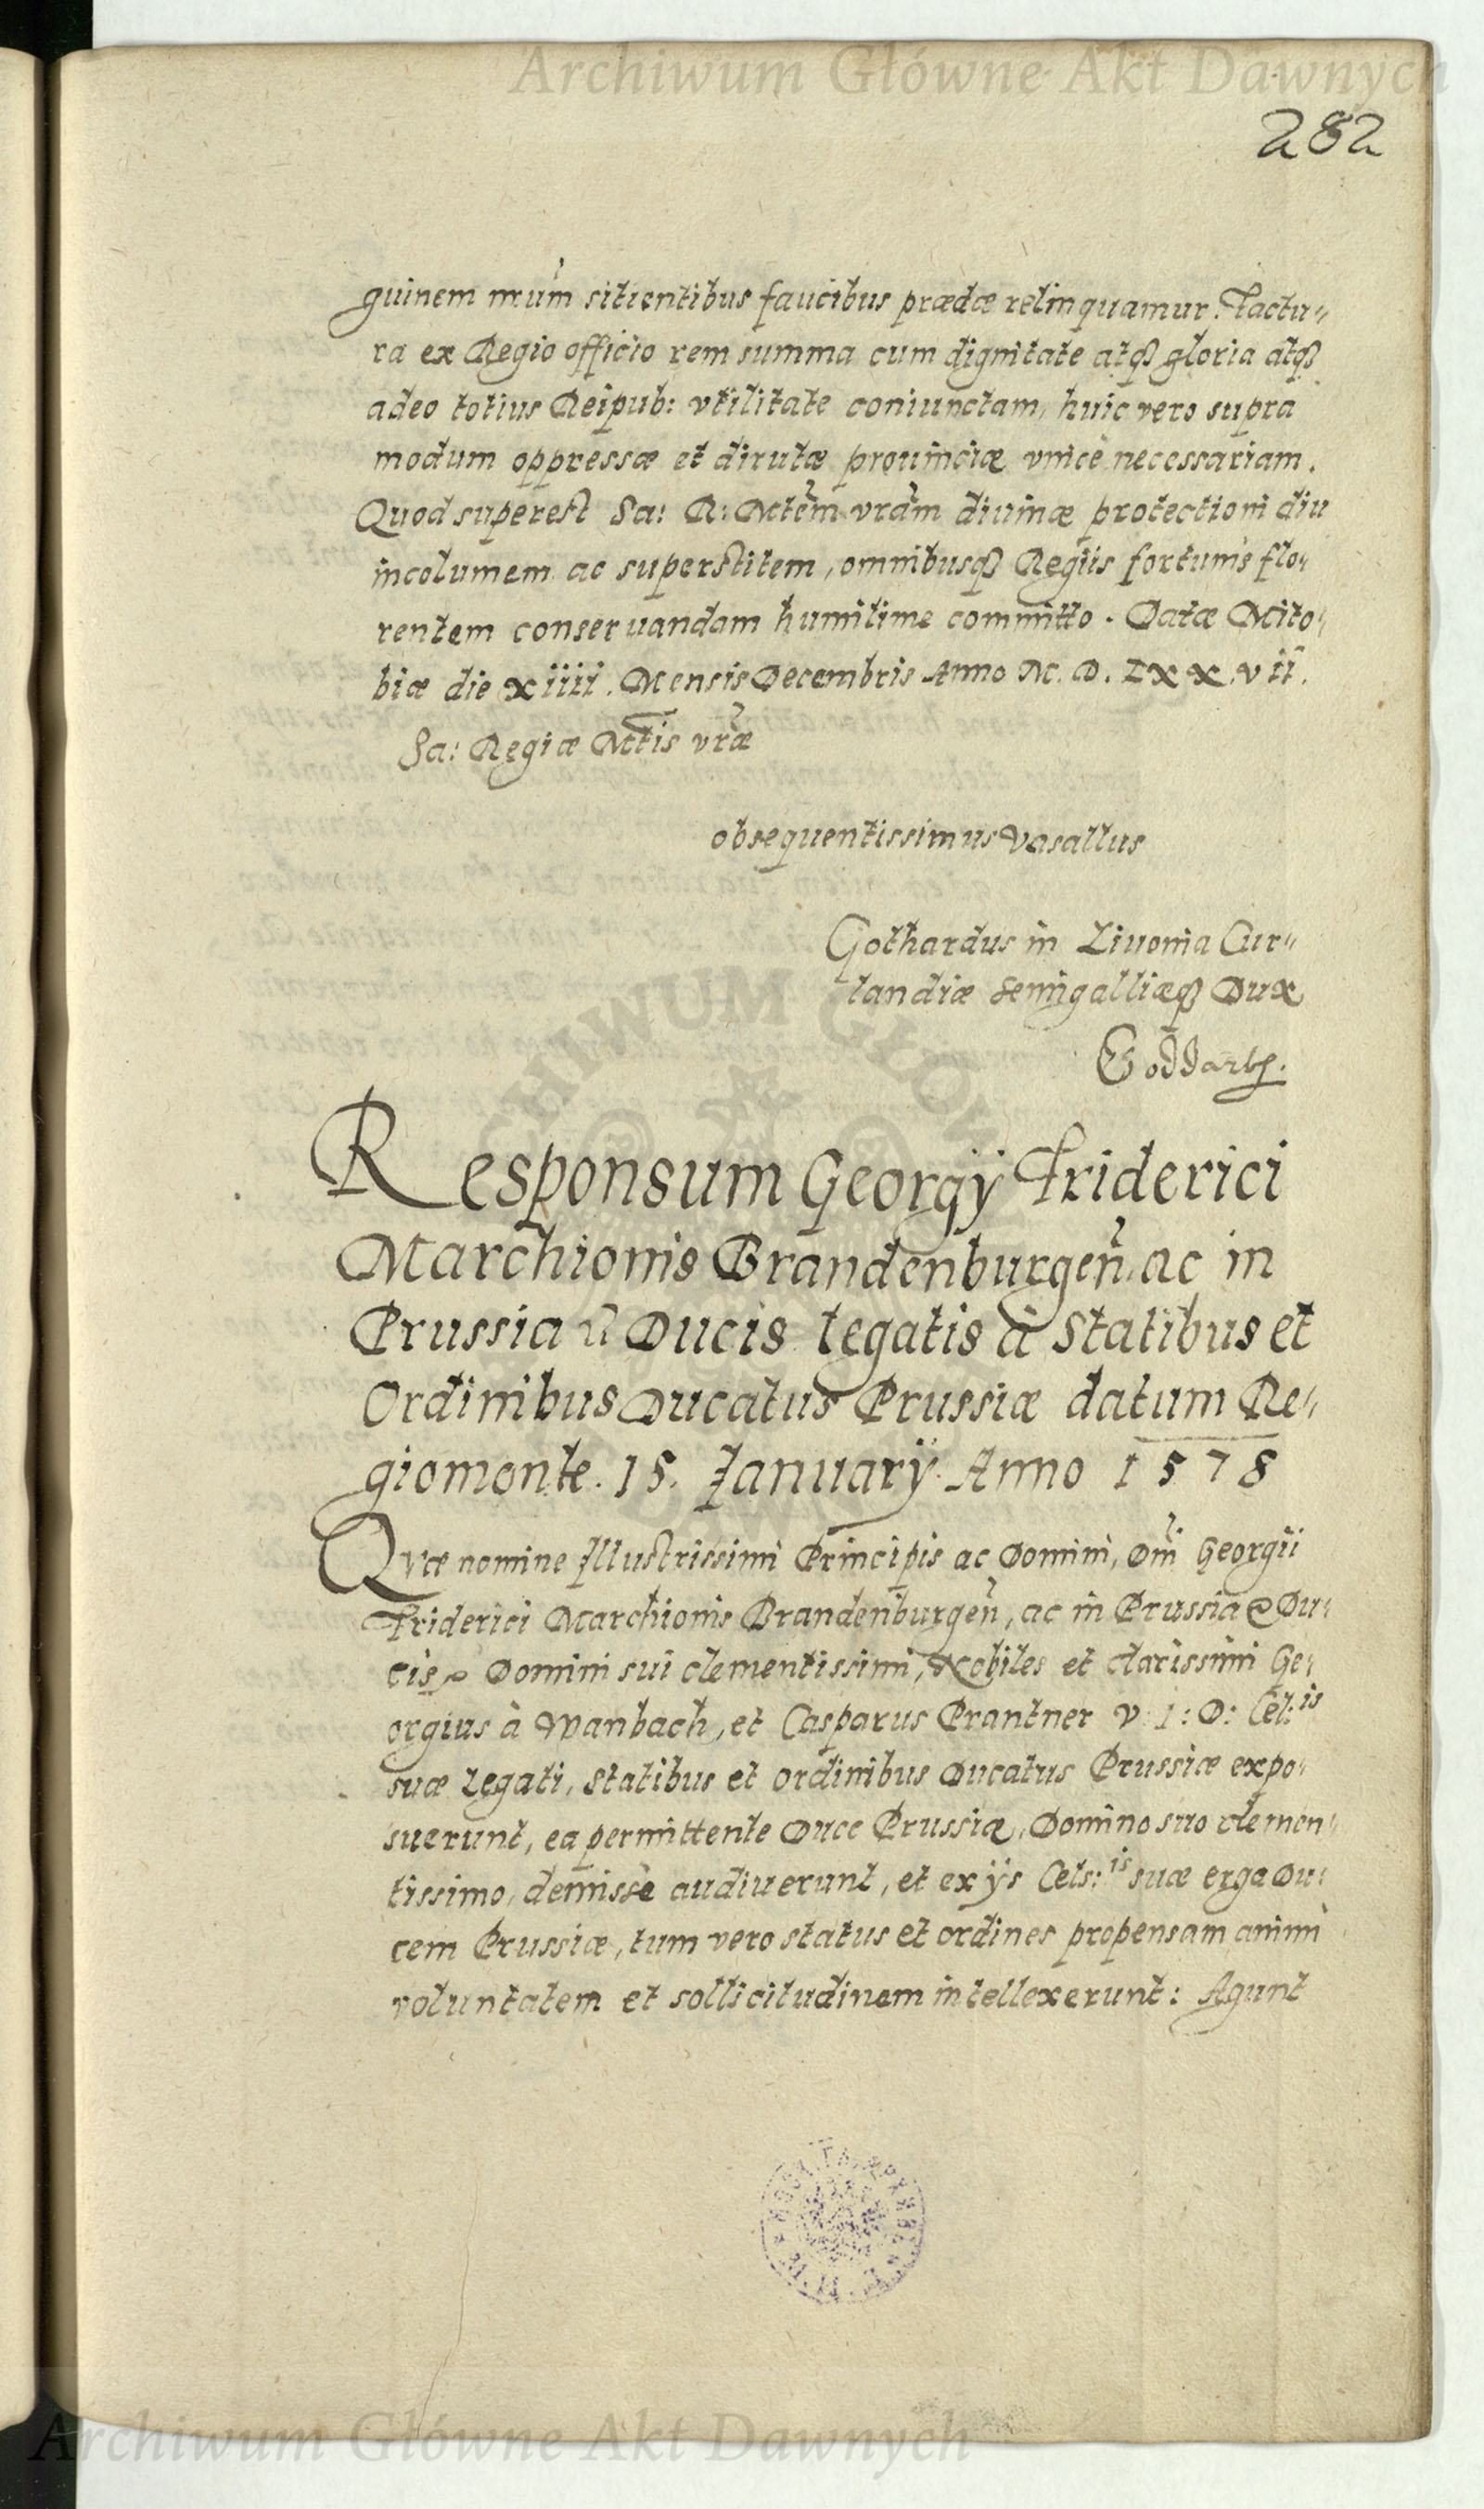 Archiwum Główne Akt Dawnych
282
guinem nr̃um sitientibus faucibus prædæ relinquamur. Factu-
ra ex Regio officio rem summa cum dignitate atq₃ gloria atq₃
adeo totius Reipub: vtilitate coniunctam, huic vero supra
modum oppressæ et dirutæ prouinciæ vnicè necessariam.
Quod superest Sa: R: Mtẽm vrãm diuinæ protectioni diu
incolumem ac superstitem, omnibusq₃ Regiis fortunis flo-
rentem conseruandam humilime committo. Datæ Mito-
biæ die xiiii. Mensis Decembris Anno M. D. Lxx.vii.
Sa: Regiæ Mtis vrã̃e
obsequentissimus Vasallus
Gothardus in Liuonia Cur-
landiæ Semigalliæq₃ Dux
Goddartz.
Responsum Georgÿ Friderici
Marchionis Brandenburgeñ. ac in
Prussia Ducis legatis à Statibus et
Ordinibus Ducatus Prussiæ datum Re-
giomonte. 15. Ianuarÿ. Anno 1578
Qvæ nomine Illustrissimi Principis ac Domini, Dñi Georgii
Friderici Marchionis Brandenburgeñ, ac in Prussia Du-
cis Domini sui clementissimi, Nobiles et clarissimi Ge-
orgius à Wanbach, et Casparus Prantner V: I: D: Cel:is
suæ Legati, Statibus et ordinibus Ducatus Prussiæ expo-
suerunt, ea permittente Duce Prussiæ, Domino suo clemen-
tissimo, demissè audiuerunt, et ex ÿs Cels:is suæ erga Du-
cem Prussiæ, tum vero status et ordines propensam animi
voluntatem et sollicitudinem intellexerunt: Agunt
Archiwum Główne Akt Dawnych